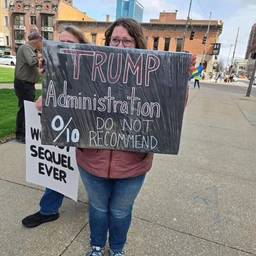 TRUMP
Administration
0/10 DO NOT
RECOMMEND
SEQUEL
EVER